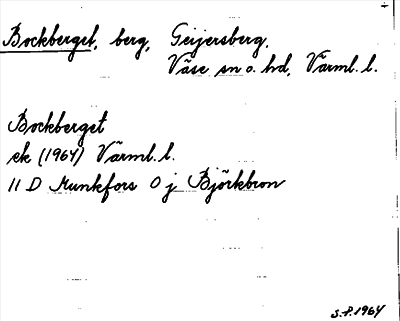 Bockberget, berg, Geijersberg,
Väse sn o. hd, Värml. l.
Bockberget
ek (1964) Värml. l.
11 D Munkfors 0 j Björkbron
S.P. 1964